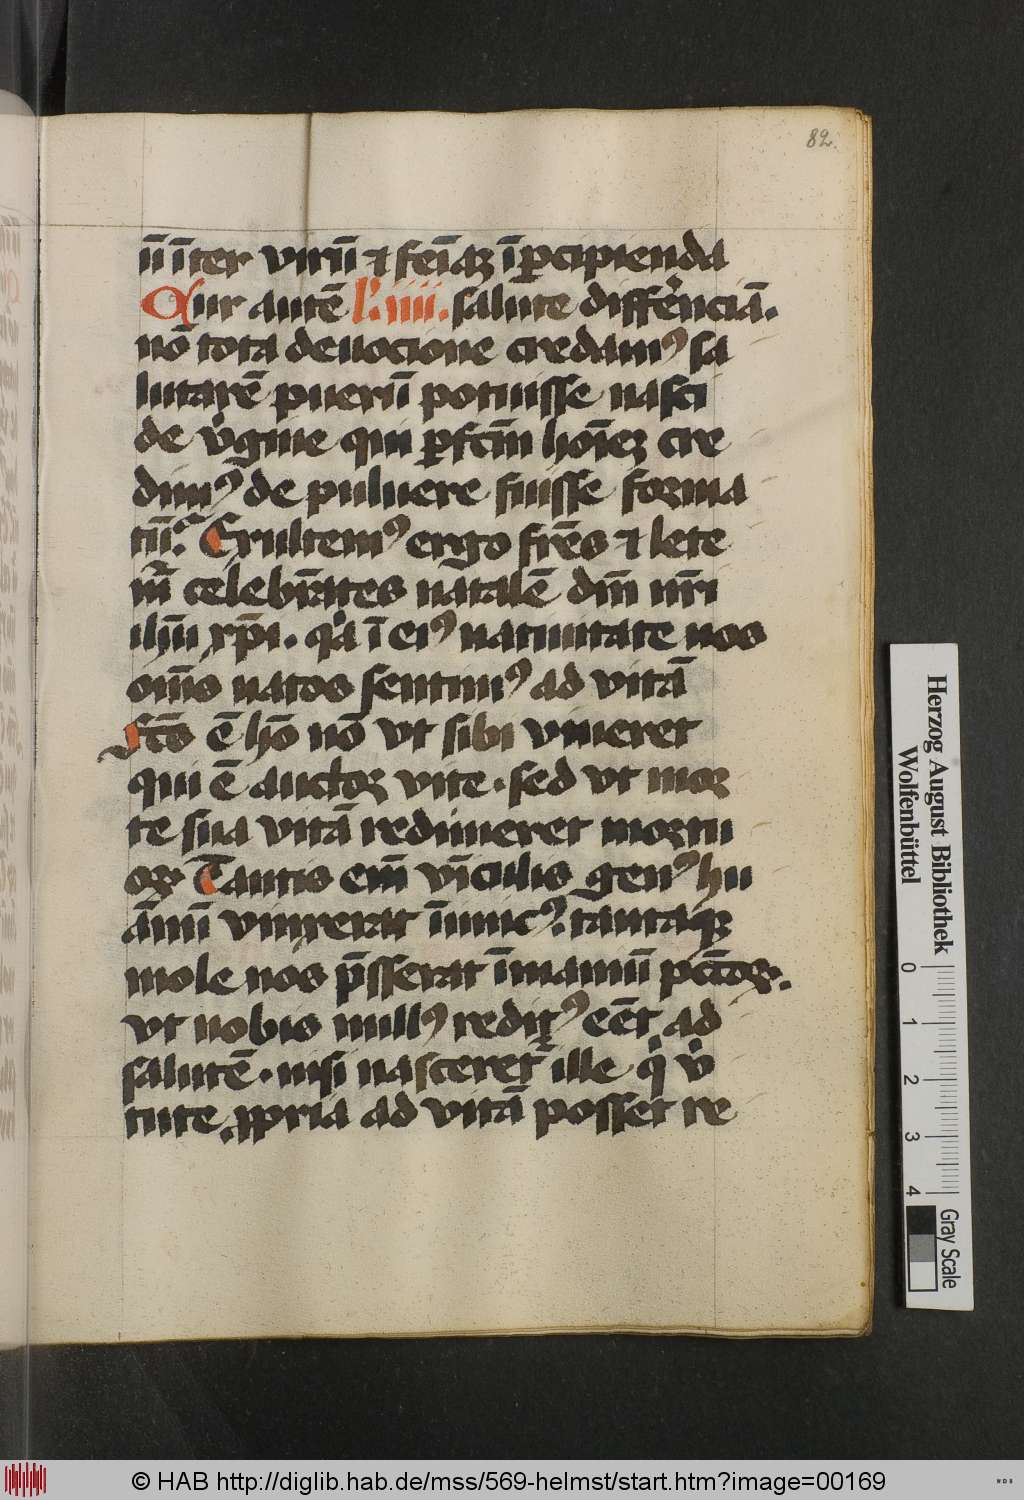 82
ū īter virū ⁊ feīaꝫ ī ꝑcipienda
Cur autē l'. iiii. salute differēnciā.
nō tota deuocione credamꝰ sa
lutarē puerū potuisse nasci
de v'gine qui ꝑfcīm hoīeꝫ cre
dimꝰ de puluere fuisse forma
tū. Exultemꝰ ergo fr̄es ⁊ lete
m̄ celebrātes natalē dn̄i nr̄i
ihū xp̄i. qia ī eiꝰ natiuitate nos
om̄s natos sentimꝰ ad vitā
fcūs ē hō nō vt sibi viueret
qui ē auctor vite. sed vt mor
te sua vitā redimeret mortu
oꝝ. Tantis em̄ vīculis genꝰ hu
ānū vinxerat īimicꝰ. tantaqꝫ
mole nos p̄sserat īmaniū pctōꝝ.
vt nobis nullꝰ reditꝰ eēt ad
salutē. nisi nasceret' ille qi v'
tute ꝓpria ad vitā posset re
Herzog August Bibliothek
Wolfenbüttel
0 1 2 3 4
Gray Scale
© HAB http://diglib.hab.de/mss/569-helmst/start.htm?image=00169